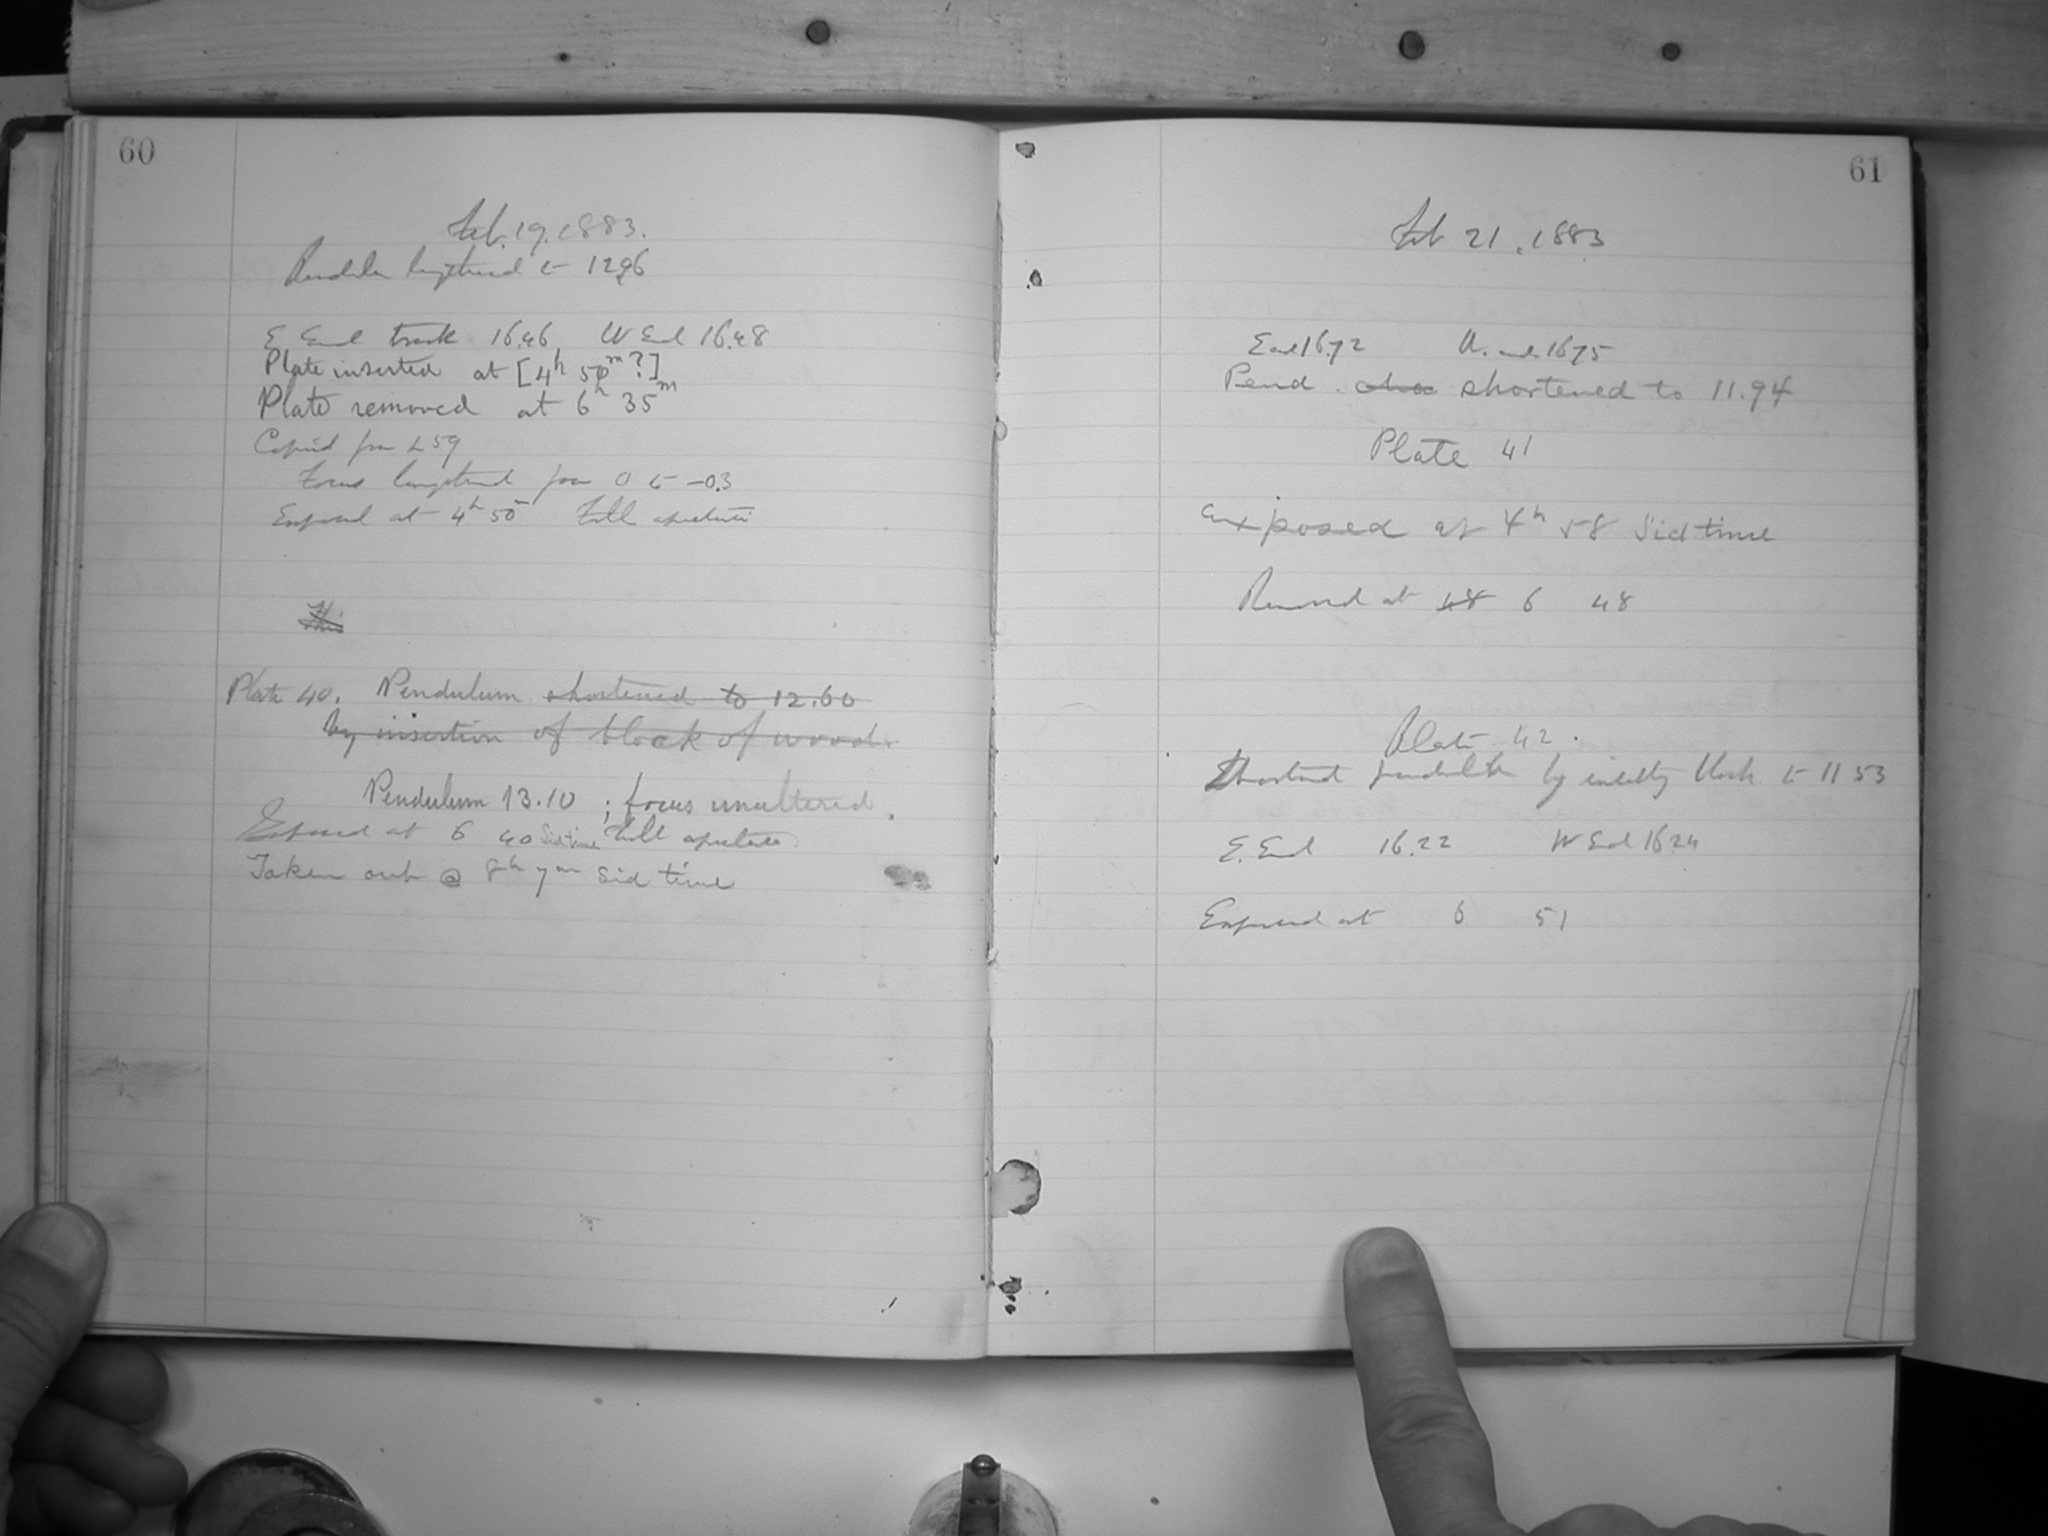 60
Feb. 19. 1883.
Pendulum lengthened to 12.96
E. End track 16.46 W End 16.48
Plate inserted at [4h 50m?]
Plate removed at 6h 35m
Copied from L 59
Focus lengthened from 0 to -0.3
Exposed at 4h 50m Full aperture
This
Plate 40. Pendulum shortened to 12.60
by insertion of block of wood.
Pendulum 13.10 ; focus unaltered.
Exposed at 6 40 Sid time Full aperture
Taken out @ 8h 7m Sid time
61
Feb 21. 1883
E end 16.72 W. end 16.75
Pend. shortened to 11.94
Plate 41
exposed at 4h 58 Sid time
Removed at 48 6 48
Plate 42.
Shortened pendulum by block to 11 53
E. End 16.22 W End 16.24
Exposed at 6 51